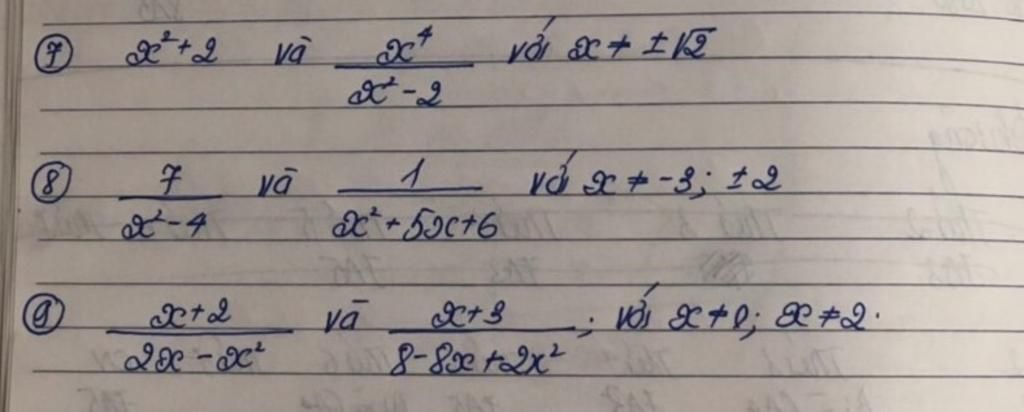 ⑦ x² + 2 và x⁴/(x² - 2) với x ≠ ±√2
⑧ 7/(x² - 4) và 1/(x² + 5x + 6) với x ≠ -3; ±2
⑨ (x + 2)/(2x - x²) và (x + 3)/(8 - 8x + 2x²); với x ≠ 0; x ≠ 2.